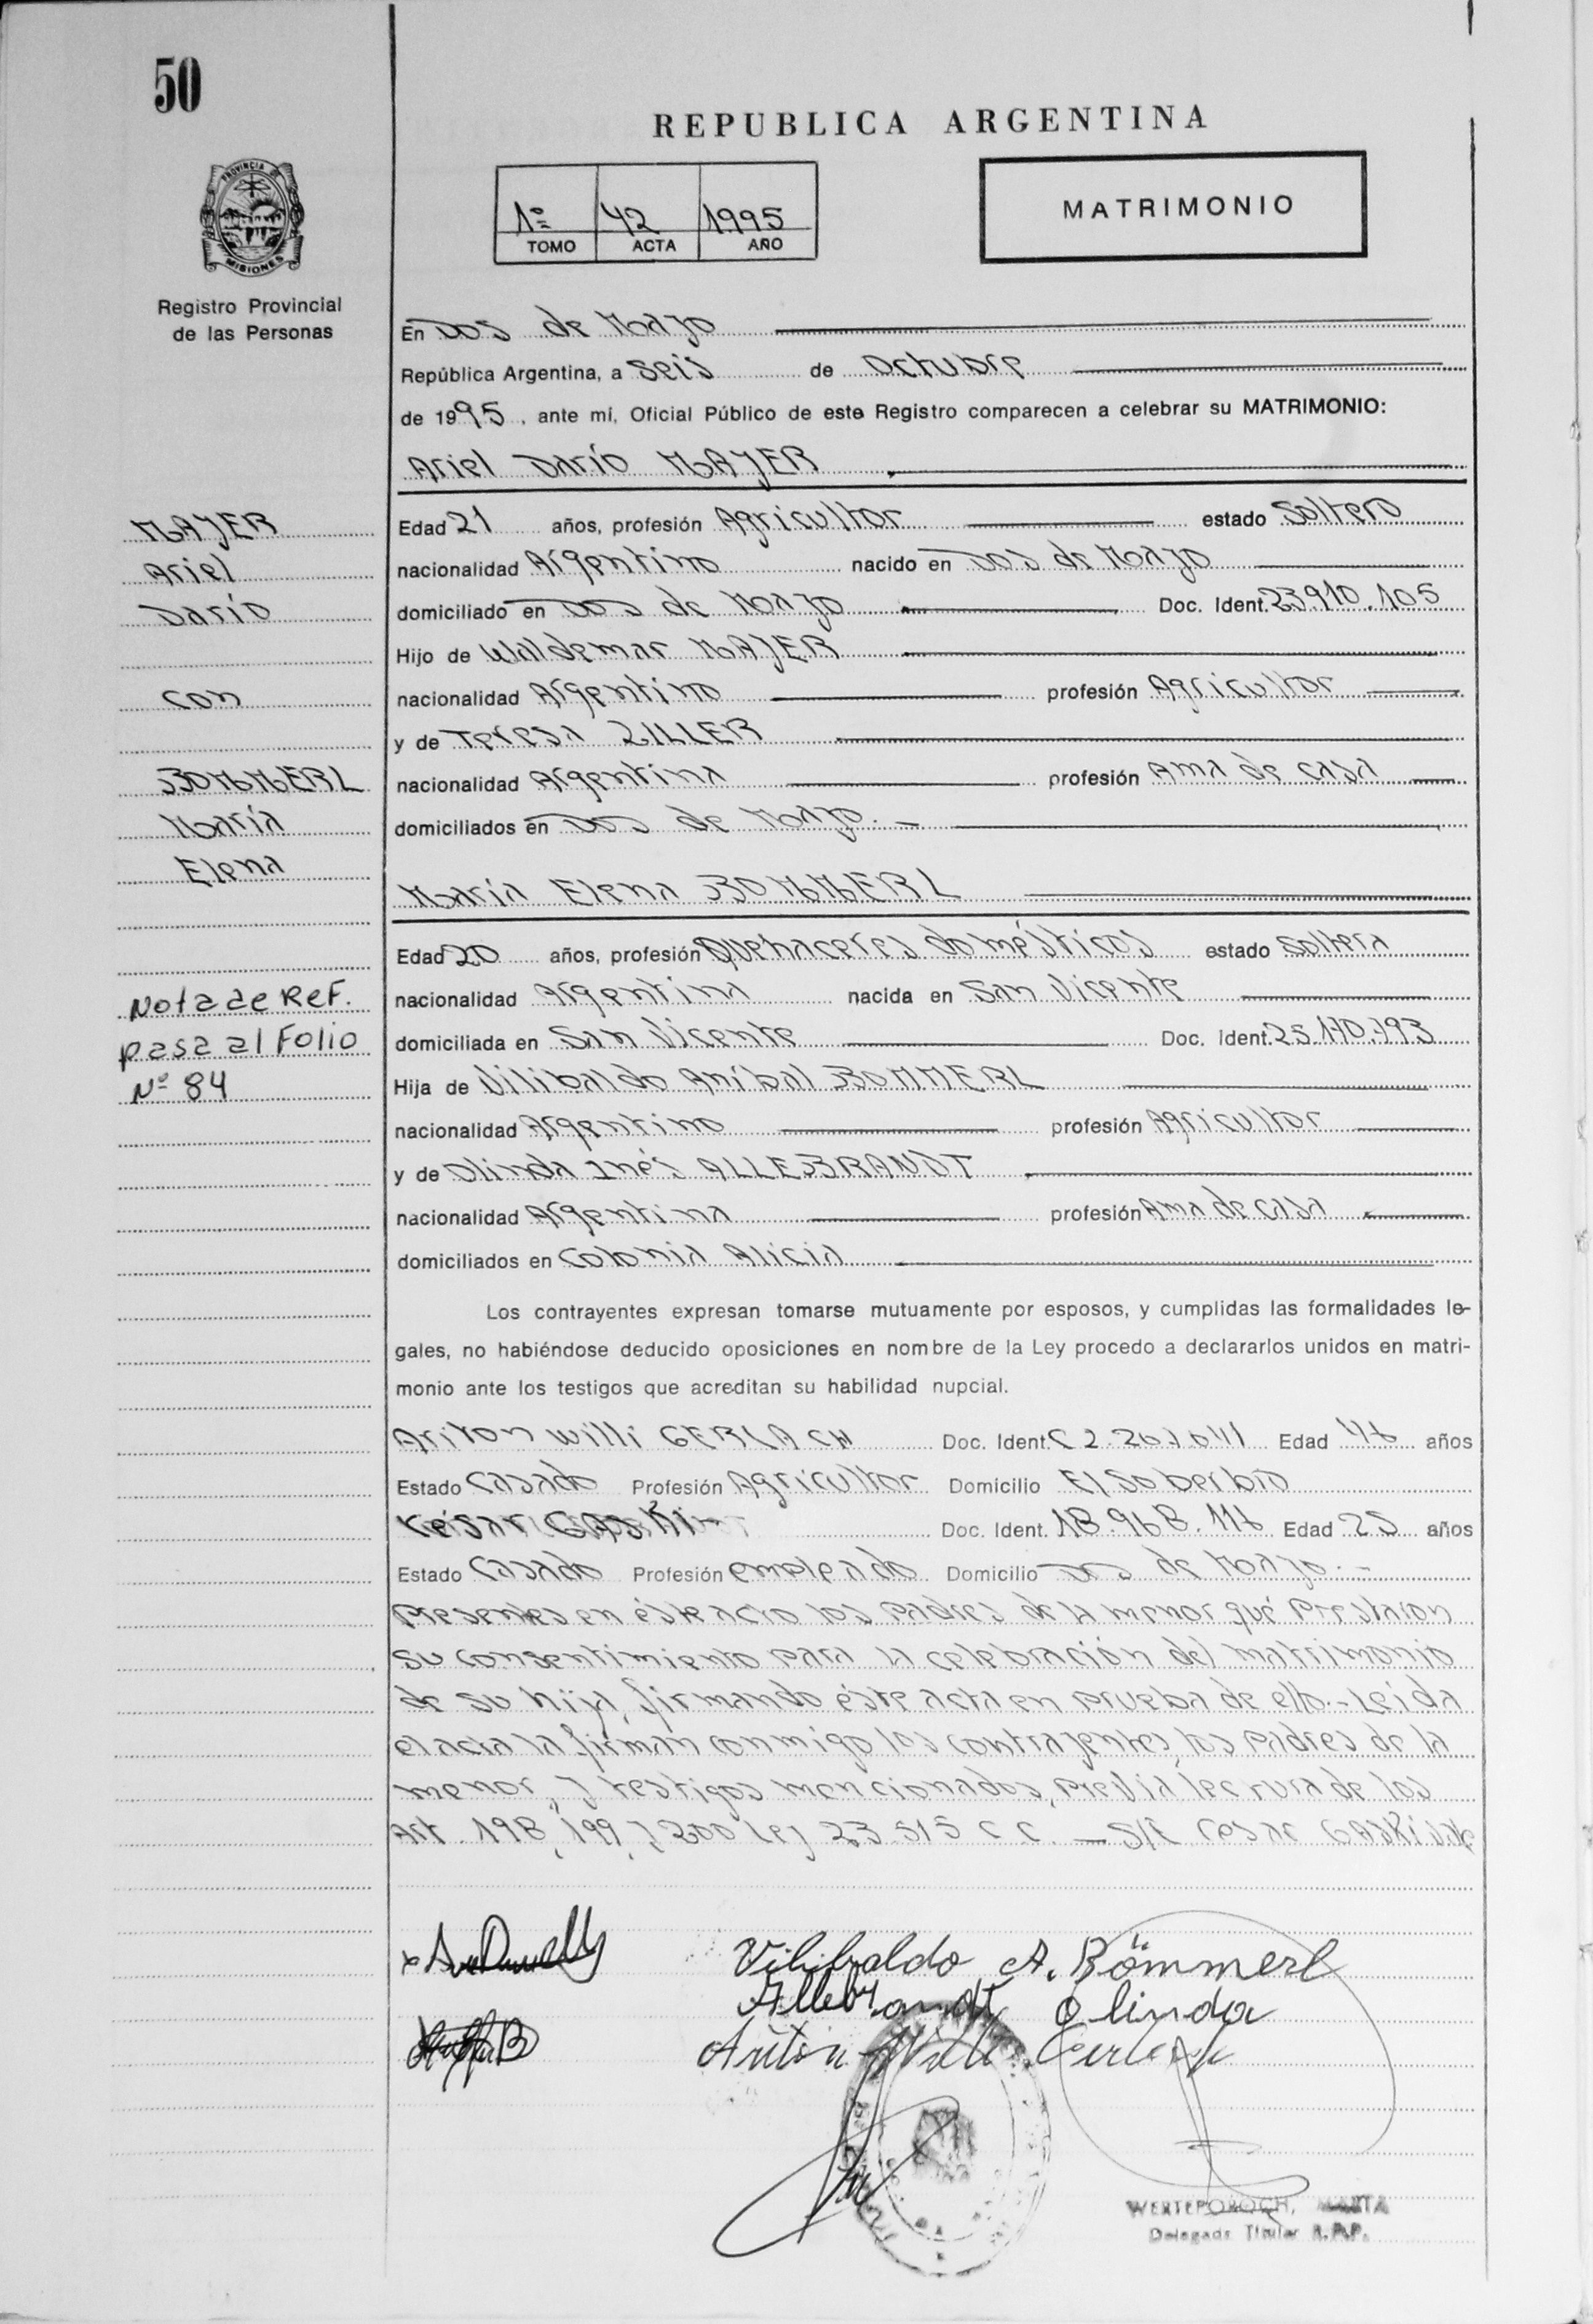 50
REPUBLICA ARGENTINA
PROVINCIA DE
MISIONES
Registro Provincial
de las Personas
1º 42 1995
TOMO ACTA AÑO
MATRIMONIO
En Dos de Mayo
República Argentina, a seis de Octubre
de 1995, ante mí, Oficial Público de este Registro comparecen a celebrar su MATRIMONIO:
Ariel Darío MAYER
MAYER
Ariel
Darío
con
BOMMERL
María
Elena
Nota de Ref.
pasa al Folio
Nº 84
Edad 21 años, profesión Agricultor estado Soltero
nacionalidad Argentino nacido en Dos de Mayo
domiciliado en Dos de Mayo Doc. Ident. 23.910.105
Hijo de Waldemar MAYER
nacionalidad Argentino profesión Agricultor
y de Teresa ZILLER
nacionalidad Argentina profesión Ama de casa
domiciliados en Dos de Mayo.-
María Elena BOMMERL
Edad 20 años, profesión Quehaceres domésticos estado Soltera
nacionalidad Argentina nacida en San Vicente
domiciliada en San Vicente Doc. Ident.
Hija de Vilibaldo Aníbal BOMMERL
nacionalidad Argentino profesión Agricultor
y de Olinda Inés ALLEBRANDT
nacionalidad Argentina profesión Ama de casa
domiciliados en Colonia Alicia
Los contrayentes expresan tomarse mutuamente por esposos, y cumplidas las formalidades le-
gales, no habiéndose deducido oposiciones en nombre de la Ley procedo a declararlos unidos en matri-
monio ante los testigos que acreditan su habilidad nupcial.
Ariton Willi GERLACH Doc. Ident. Edad 46 años
Estado Casado Profesión Agricultor Domicilio El Soberbio
César Doc. Ident. 18.968.116 Edad 25 años
Estado Casado Profesión empleado Domicilio Dos de Mayo.-
Presentes en éste acto los padres de la menor qué prestaron
su consentimiento para la celebración del matrimonio
de su hija, firmando éste acta en prueba de ello.- Leída
el acta la firman conmigo los contrayentes, los padres de la
menor, y testigos mencionados, previa lectura de los
Art. 198, 199, y 200 Ley 23.515 C C. — S/R Cesar
Vilibaldo A. Bömmerl
Allebrandt Olinda
Ariton Willi Gerlach
WERTEPOROCH, MARTA
Delegada Titular R.P.P.